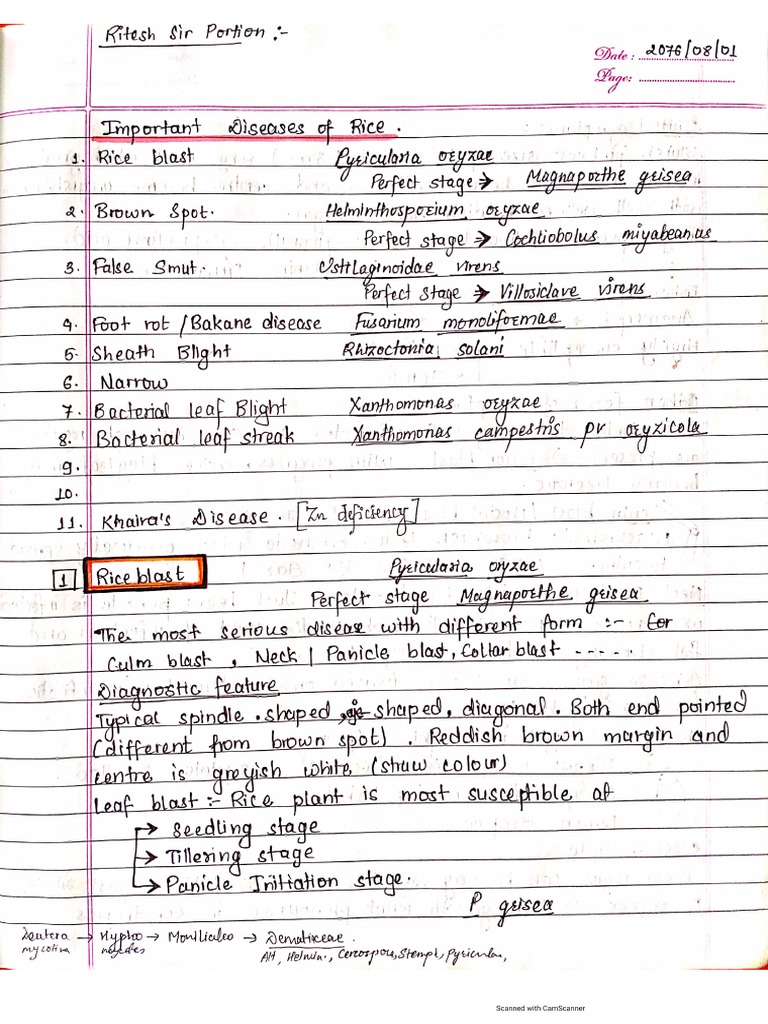 Ritesh Sir Portion :-
Date : 2076/08/01
Page:
Important Diseases of Rice .
1. Rice blast Pyricularia oryzae
Perfect stage → Magnaporthe grisea
2. Brown Spot. Helminthosporium oryzae
Perfect stage → Cochliobolus miyabeanus
3. False Smut. Ustilaginoidae virens
Perfect stage → Villosiclave virens
4. Foot rot / Bakane disease Fusarium monoliformae
5. Sheath Blight Rhizoctonia solani
6. Narrow
7. Bacterial leaf Blight Xanthomonas oryzae
8. Bacterial leaf streak Xanthomonas campestris pv oryzicola
9.
10.
11. Khaira's Disease . [Zn deficiency]
1 Rice blast Pyricularia oryzae
Perfect stage Magnaporthe grisea
The most serious disease with different form :-
Culm blast , Neck | Panicle blast, Collar blast .....
Diagnostic feature
Typical spindle . shaped , shaped, diagonal . Both end pointed
(different from brown spot) . Reddish brown margin and
centre is greyish white (straw colour)
Leaf blast :- Rice plant is most susceptible at
→ Seedling stage
→ Tillering stage
→ Panicle Initiation stage.
P grisea
Deutero → Hypho → Moniliales → Dematiceae .
mycotina mycetes Alt, Helmin., Cercospora, Stempl, Pyricular,
Scanned with CamScanner